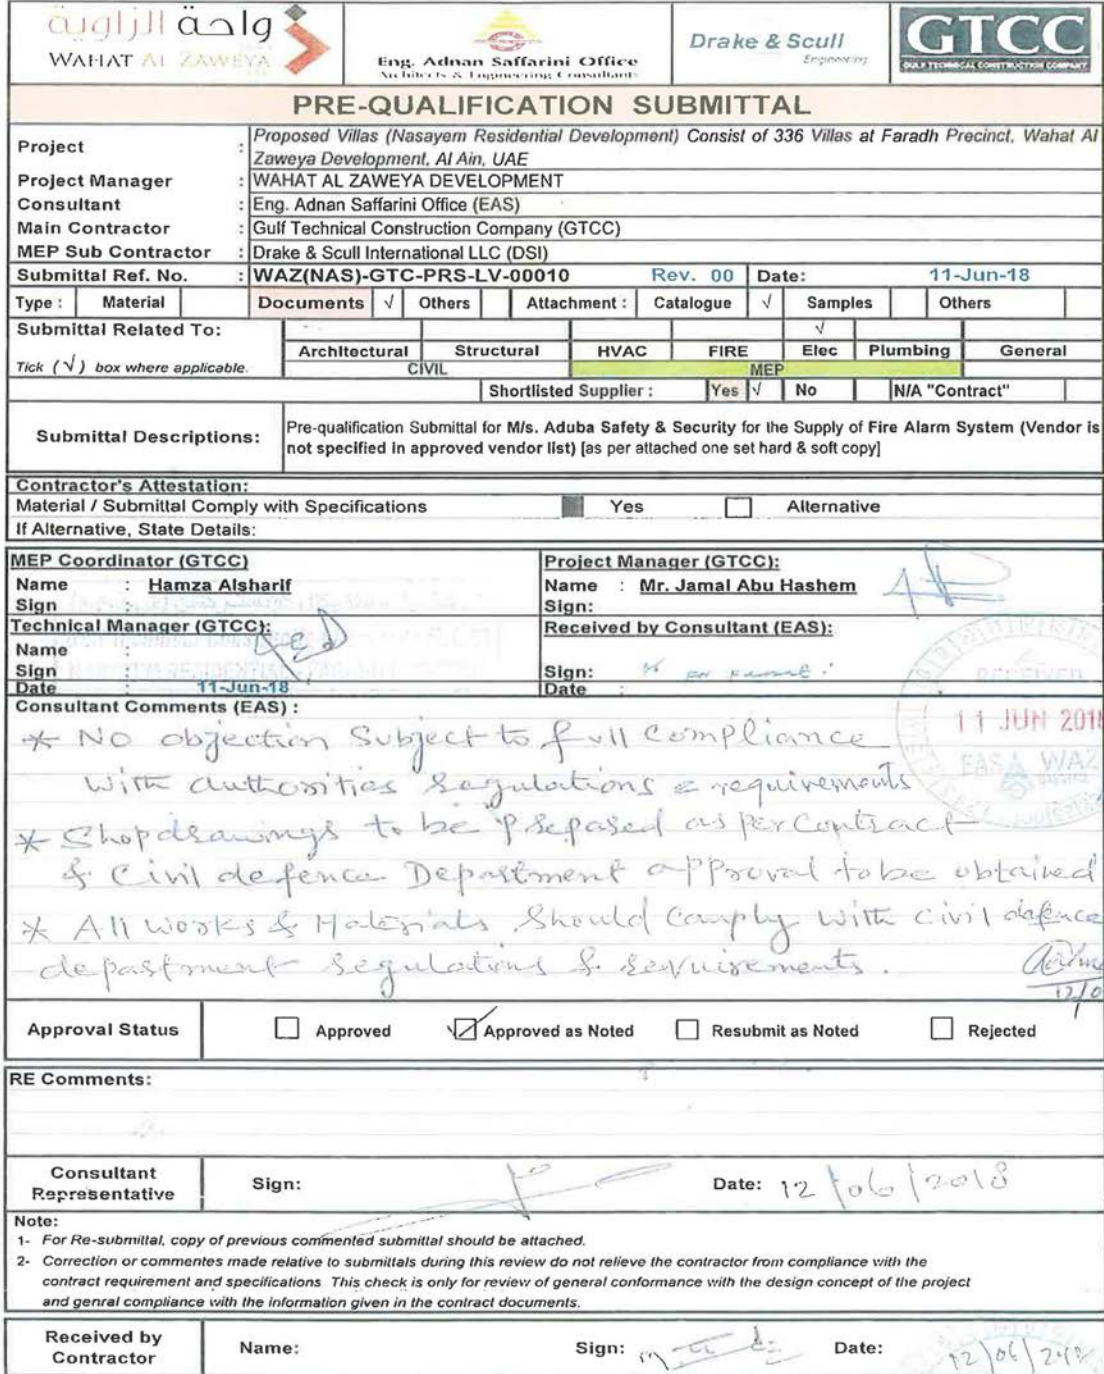 واحة الزاوية
WAHAT AL ZAWEYA
Eng. Adnan Saffarini Office
Architects & Engineering Consultants
Drake & Scull
Engineering
GTCC
GULF TECHNICAL CONSTRUCTION COMPANY
PRE-QUALIFICATION SUBMITTAL
Project : Proposed Villas (Nasayem Residential Development) Consist of 336 Villas at Faradh Precinct, Wahat Al
Zaweya Development, Al Ain, UAE
Project Manager : WAHAT AL ZAWEYA DEVELOPMENT
Consultant : Eng. Adnan Saffarini Office (EAS)
Main Contractor : Gulf Technical Construction Company (GTCC)
MEP Sub Contractor : Drake & Scull International LLC (DSI)
Submittal Ref. No. : WAZ(NAS)-GTC-PRS-LV-00010 Rev. 00 Date: 11-Jun-18
Type : Material Documents √ Others Attachment : Catalogue √ Samples Others
Submittal Related To: √
Architectural Structural HVAC FIRE Elec Plumbing General
Tick (√) box where applicable. CIVIL MEP
Shortlisted Supplier : Yes √ No N/A "Contract"
Submittal Descriptions: Pre-qualification Submittal for M/s. Aduba Safety & Security for the Supply of Fire Alarm System (Vendor is
not specified in approved vendor list) [as per attached one set hard & soft copy]
Contractor's Attestation:
Material / Submittal Comply with Specifications Yes Alternative
If Alternative, State Details:
MEP Coordinator (GTCC) Project Manager (GTCC):
Name : Hamza Alsharif Name : Mr. Jamal Abu Hashem
Sign : Sign:
Technical Manager (GTCC): Received by Consultant (EAS):
Name :
Sign : Sign:
Date 11-Jun-18 Date :
RECEIVED
11 JUN 2018
EAS WAZ
Consultant Comments (EAS) :
* No objection Subject to full compliance
with authorities regulations & requirements
* Shop drawings to be prepared as per contract
& Civil defence Department approval to be obtained
* All works & Materials should comply with civil defence
department regulations & requirements.
Approval Status Approved Approved as Noted Resubmit as Noted Rejected
RE Comments:
Consultant
Representative Sign: Date: 12/06/2018
Note:
1- For Re-submittal, copy of previous commented submittal should be attached.
2- Correction or commentes made relative to submittals during this review do not relieve the contractor from compliance with the
contract requirement and specifications This check is only for review of general conformance with the design concept of the project
and genral compliance with the information given in the contract documents.
Received by
Contractor Name: Sign: Date: 12/06/2018